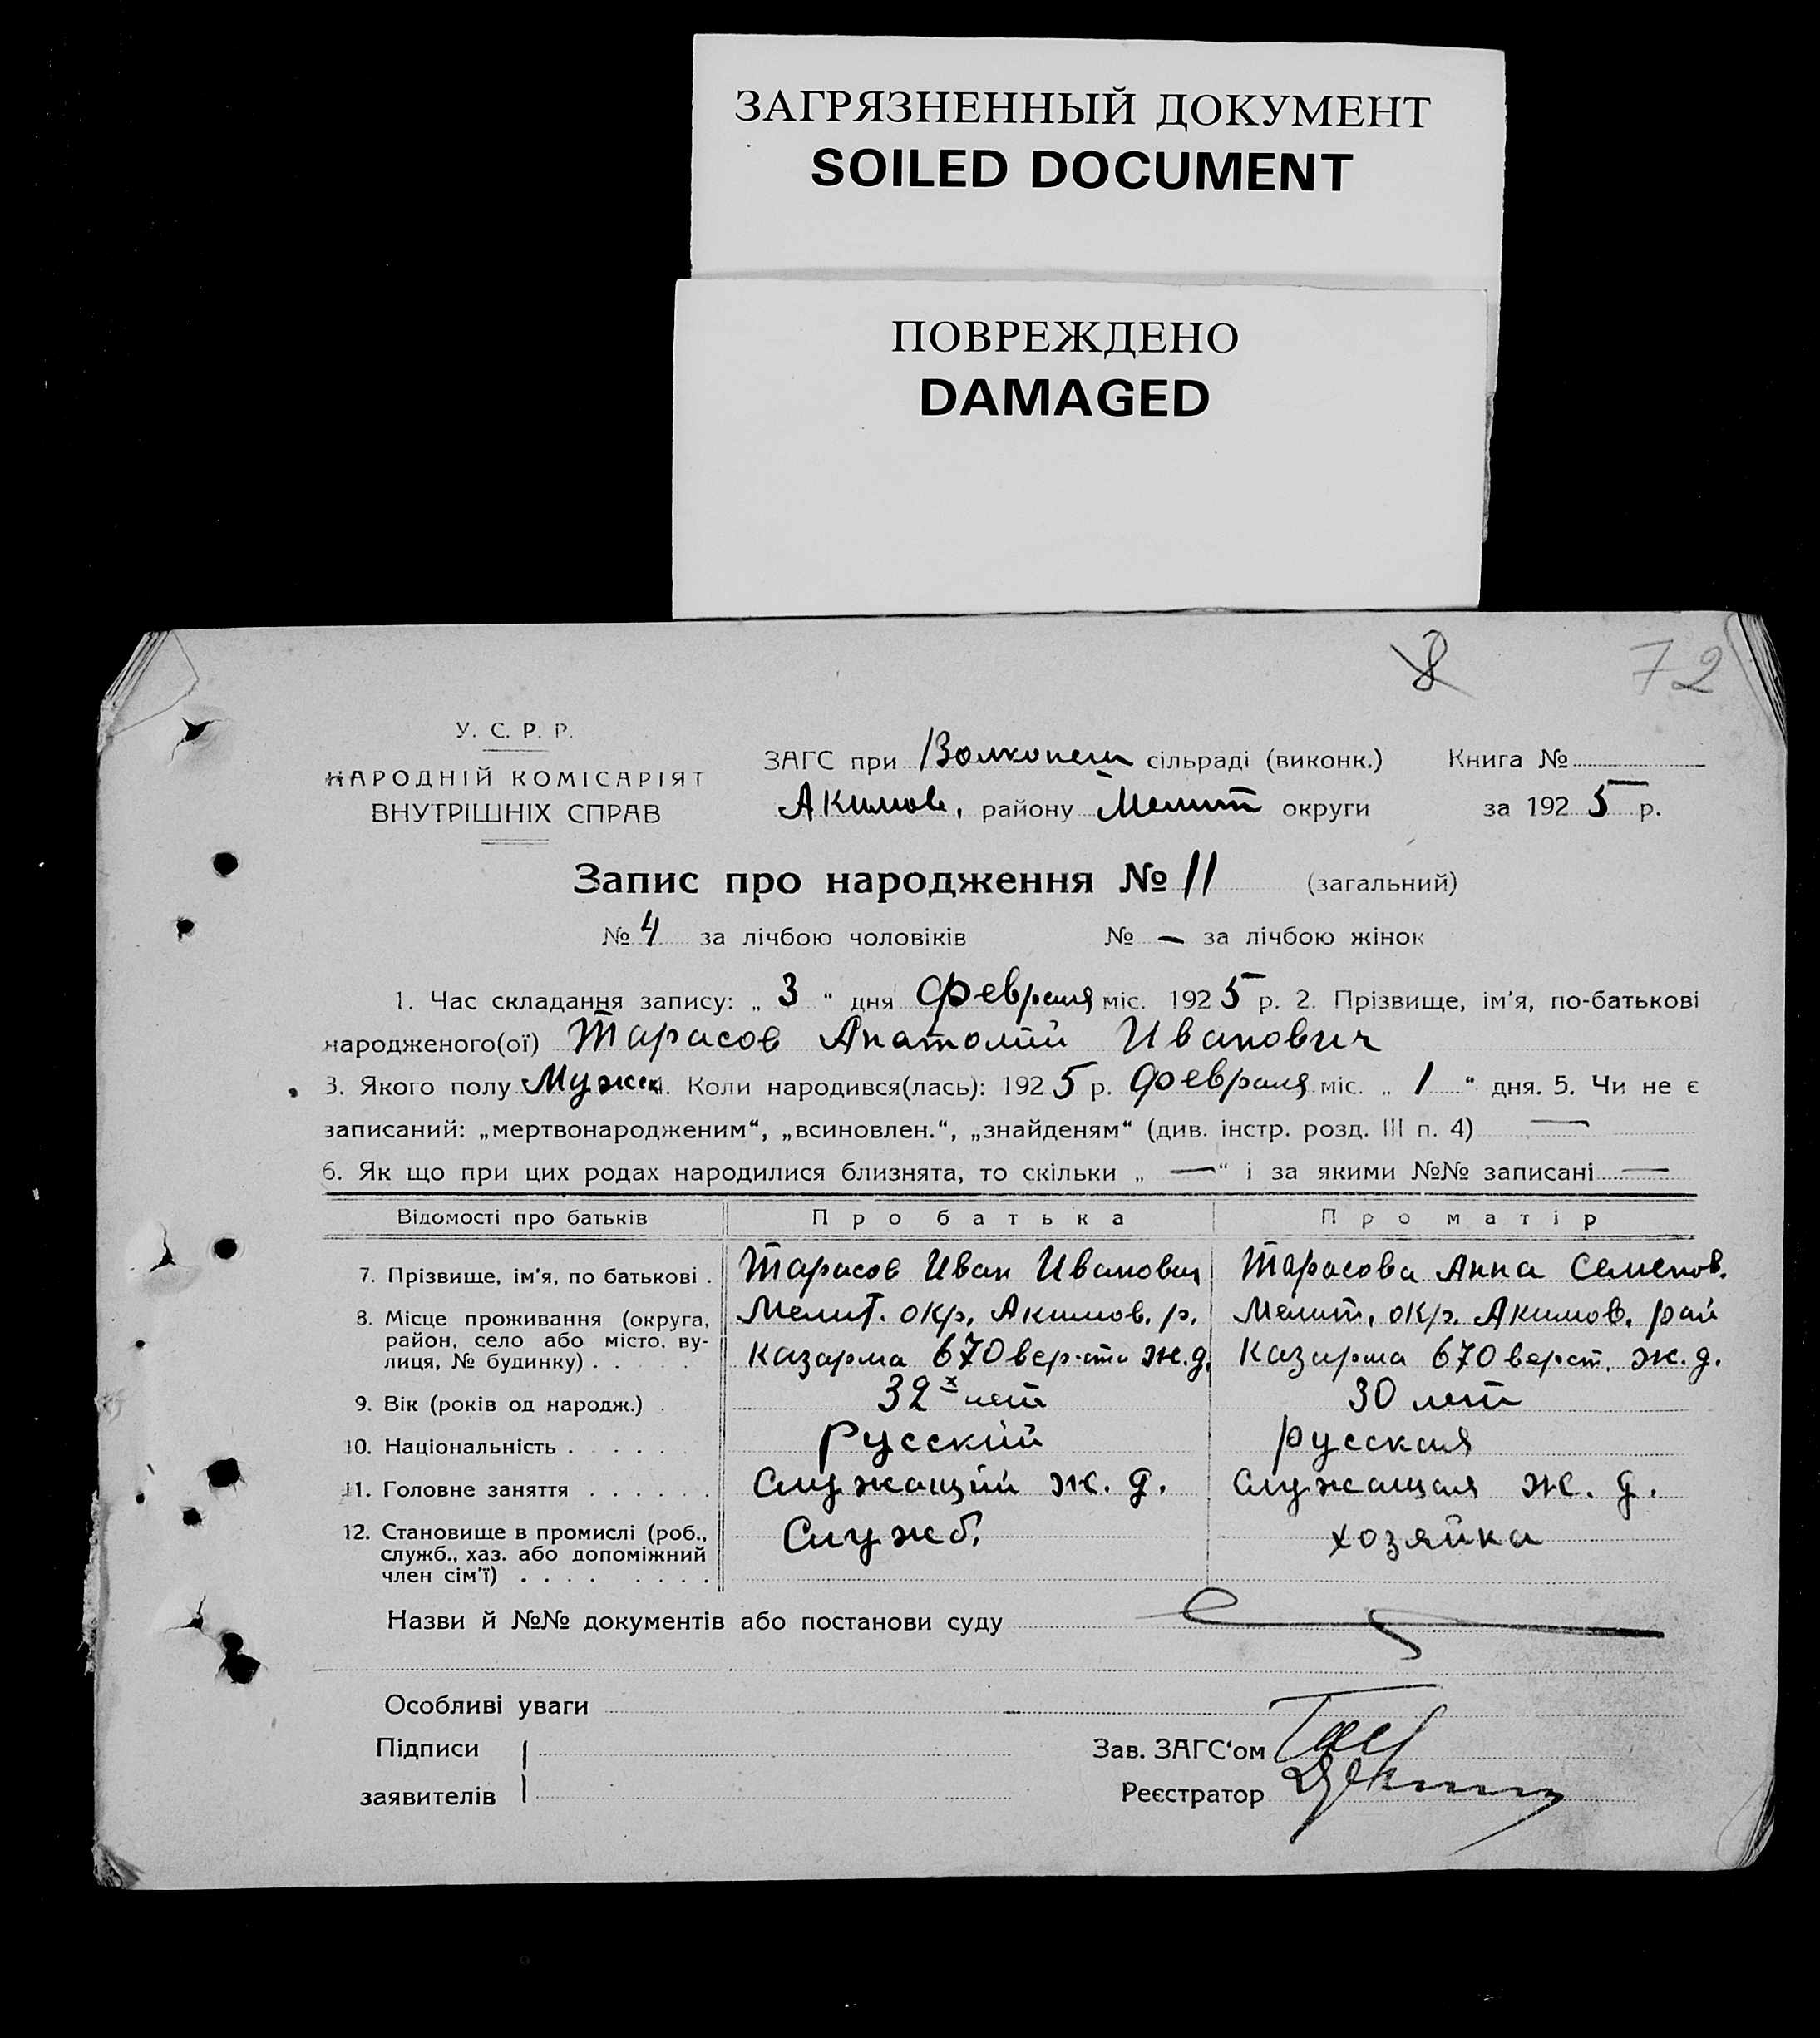 ЗАГРЯЗНЕННЫЙ ДОКУМЕНТ
SOILED DOCUMENT
ПОВРЕЖДЕНО
DAMAGED
8 72
У. С. Р. Р.
НАРОДНІЙ КОМІСАРІЯТ
ВНУТРІШНІХ СПРАВ
ЗАГС при сільраді (виконк.) Книга №
Акимов. району Мелит округи за 1925 р.
Запис про народження № 11 (загальний)
№ 4 за лічбою чоловіків № — за лічбою жінок
1. Час складання запису: „ 3 “ дня февраля міс. 1925 р. 2. Прізвище, ім'я, по-батькові
народженого(ої) Тарасов Анатолий Иванович
3. Якого полу Мужск 4. Коли народився(лась): 1925 р. февраля міс. „ 1 “ дня. 5. Чи не є
записаний: „мертвонародженим“, „всиновлен.“, „знайденям“ (див. інстр. розд. III п. 4) —
6. Як що при цих родах народилися близнята, то скільки „ — “ і за якими №№ записані —
Відомості про батьків Про батька Про матір
7. Прізвище, ім'я, по батькові . Тарасов Иван Иванович Тарасова Анна Семенов.
8. Місце проживання (округа, Мелит. окр. Акимов. р. Мелит. окр. Акимов. рай
район, село або місто, ву-
лиця, № будинку) . . . . Казарма 670 верста ж.д. Казарма 670 верст. ж.д.
9. Вік (років од народж.) . 32х лет 30 лет
10. Національність . . . . Русский русская
11. Головне заняття . . . . . . Служащий ж. д. Служащая ж. д.
12. Становище в промислі (роб., Служб. хозяйка
служб., хаз. або допоміжний
член сім'ї) . . . . . . . .
Назви й №№ документів або постанови суду
Особливі уваги
Підписи
заявителів
Зав. ЗАГС'ом
Реєстратор